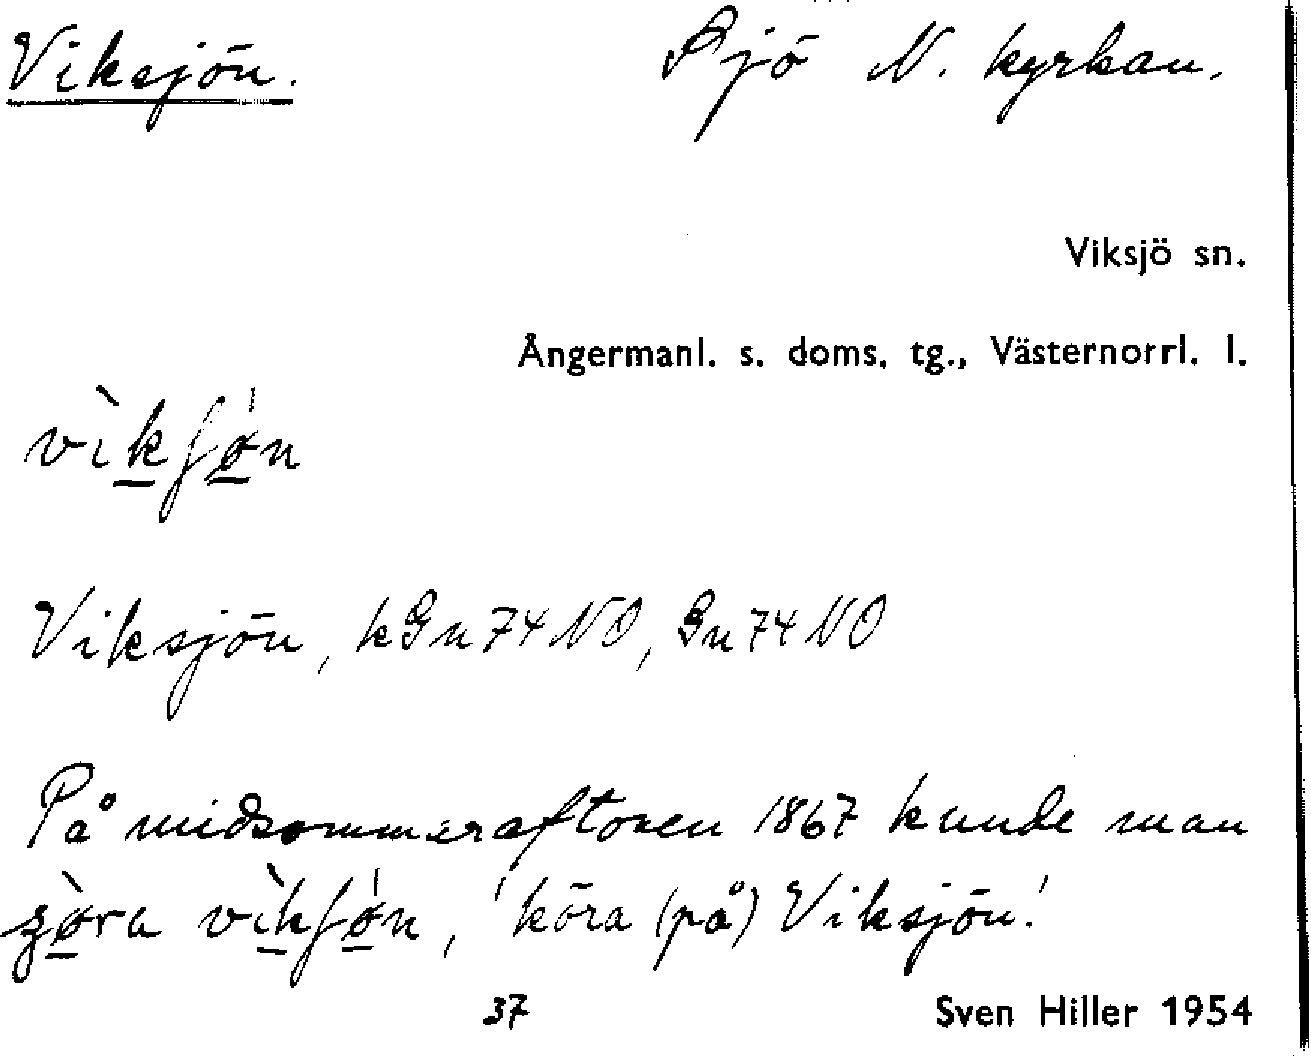 Viksjön. Sjö N. kyrkan.
Viksjö sn.
Ångermanl. s. doms. tg., Västernorrl. l.
vìk̠ʃǿ̠n
Viksjön, kGn74NO, Gn74NO
På midsommeraftonen 1867 kunde man
ʒø̠̀ra vìk̠ʃǿ̠n, 'köra (på) Viksjön.'
37 Sven Hiller 1954